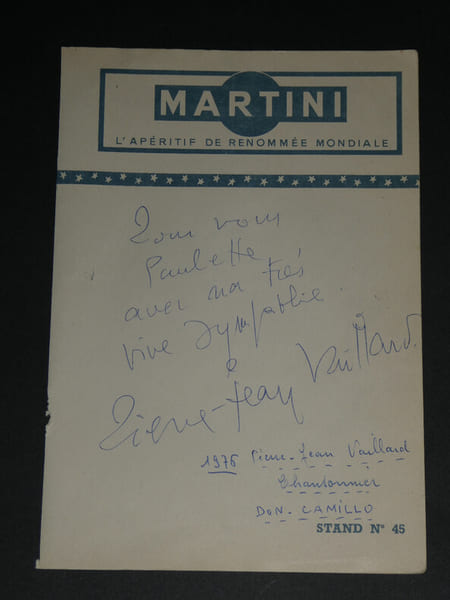 MARTINI
L'APÉRITIF DE RENOMMÉE MONDIALE
Pour vous
Paulette,
avec ma très
vive sympathie
Pierre-Jean Vaillard.
1976 Pierre-Jean Vaillard
Chansonnier
DON. CAMILLO
STAND N° 45